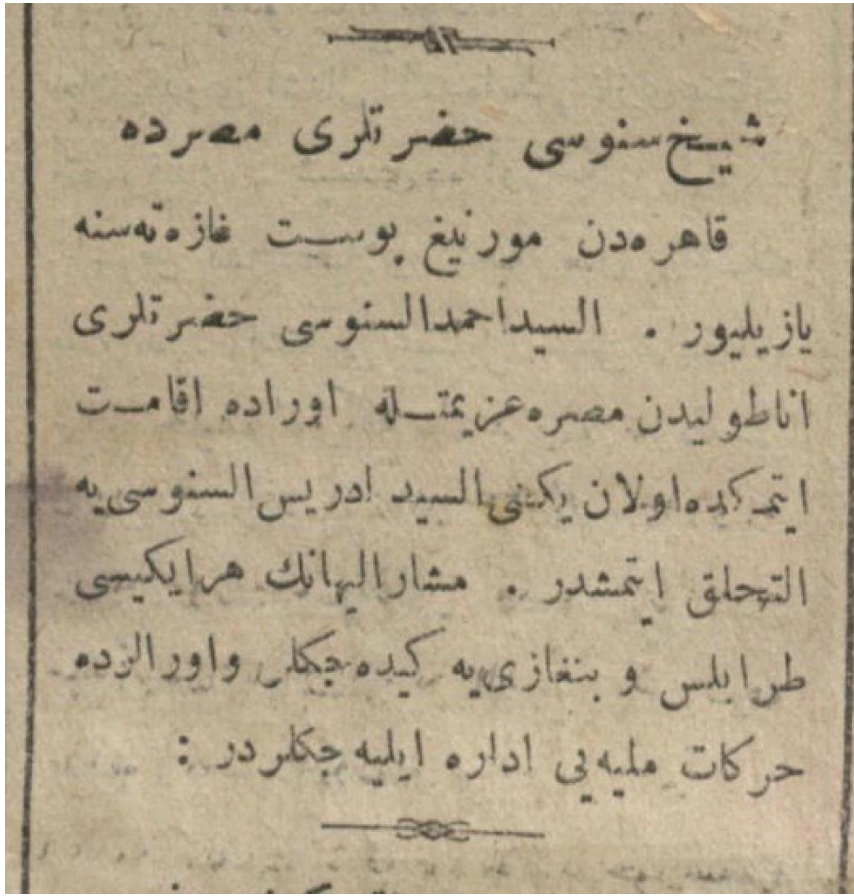 شیخ سنوسی حضرتلری مصرده
قاهره‌دن مورنیغ پوست غازه‌ته‌سنه
یازیلیور . السید احمد السنوسی حضرتلری
اناطولیدن مصره عزیمتله اوراده اقامت
ایتمکده اولان یکنی السید ادریس السنوسی یه
التحلق ایتمشدر . مشارالیهانك هر ایکیسی
طرابلس و بنغازی یه کیده جکلر و اورالرده
حرکات ملیه یی اداره ایلیه جکلردر :